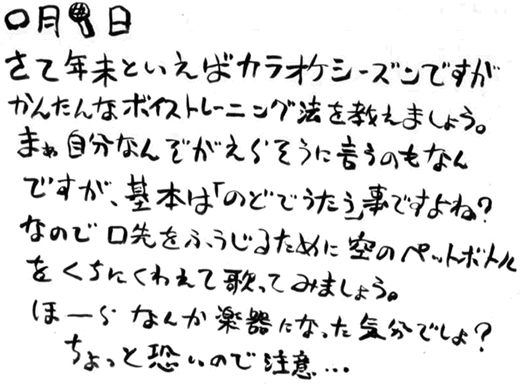 〇月　日
さて年末といえばカラオケシーズンですが
かんたんなボイストレーニング法を教えましょう。
まぁ自分なんぞがえらそうに言うのもなん
ですが、基本は「のどでうたう」事ですよね?
なので口先をふうじるために空のペットボトル
をくちにくわえて歌ってみましょう。
ほーら なんか楽器になった気分でしょ?
ちょっと恐いので注意…